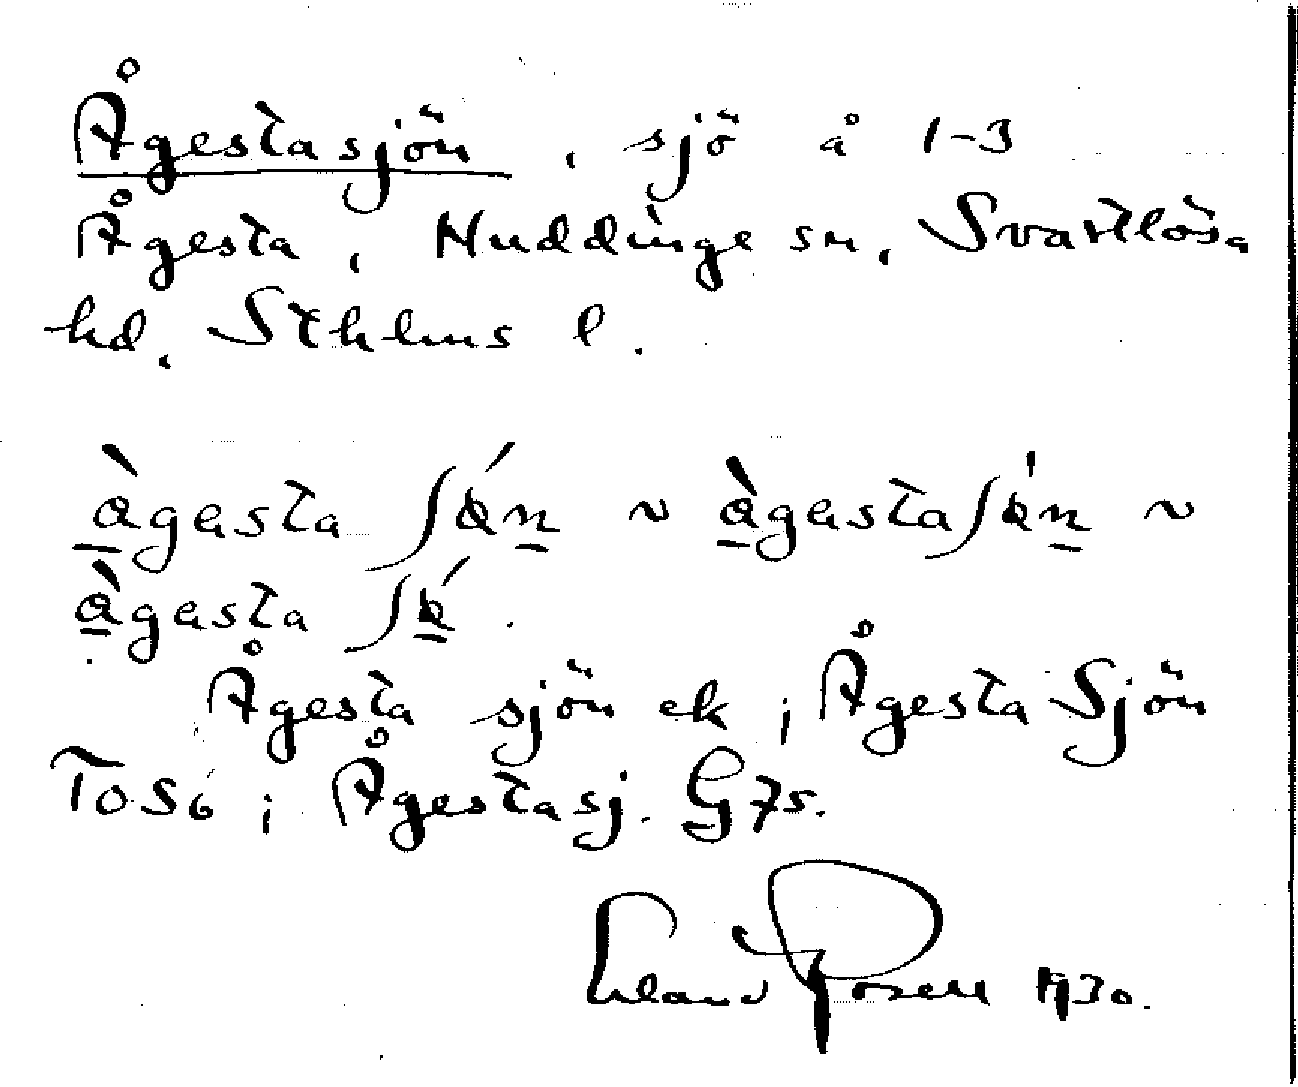 Ågestasjön, sjö å 1-3
Ågesta, Huddinge sn, Svartlösa
hd, Sthlms l.
ågesta ʃǿn ~ ågestaʃǿn ~
ågesta ʃǿ.
Ågesta sjön ek; Ågesta Sjön
To 56; Ågestasj. G 75.
Erland Rosell 1930.